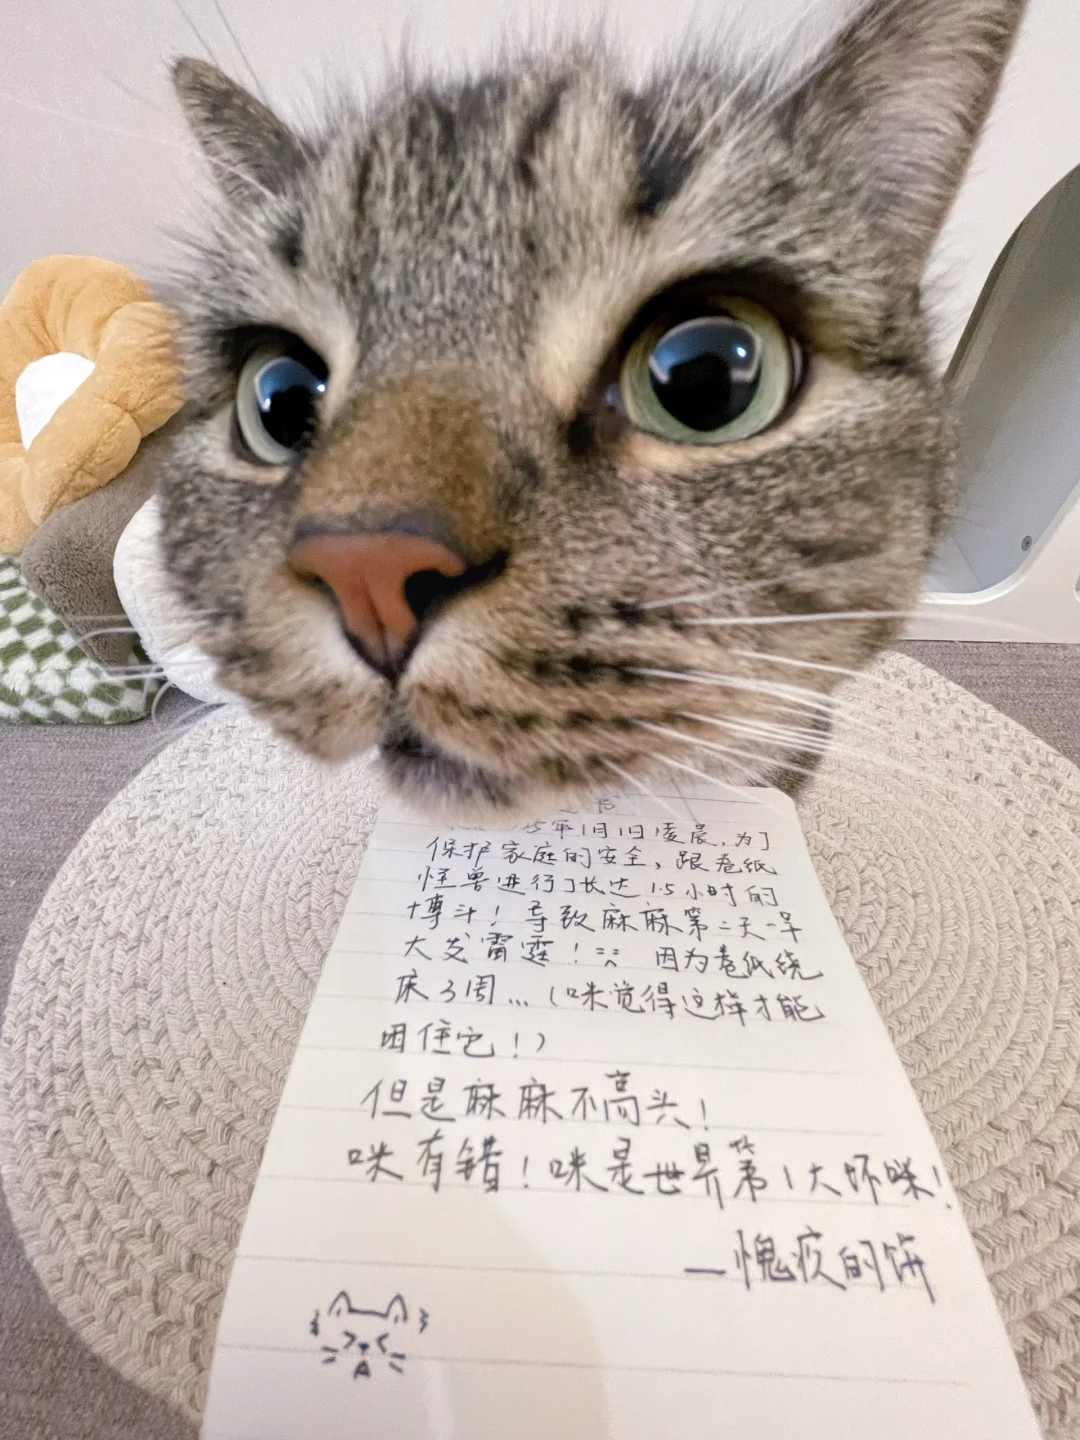 5年1月1日凌晨，为了
保护家庭的安全，跟卷纸
怪兽进行了长达1.5小时的
博斗！导致麻麻第二天一早
大发雷霆！因为卷纸绕
床3周...（咪觉得这样才能
困住它！）
但是麻麻不高头！
咪有错！咪是世界第1大坏咪！
—愧疚的饼